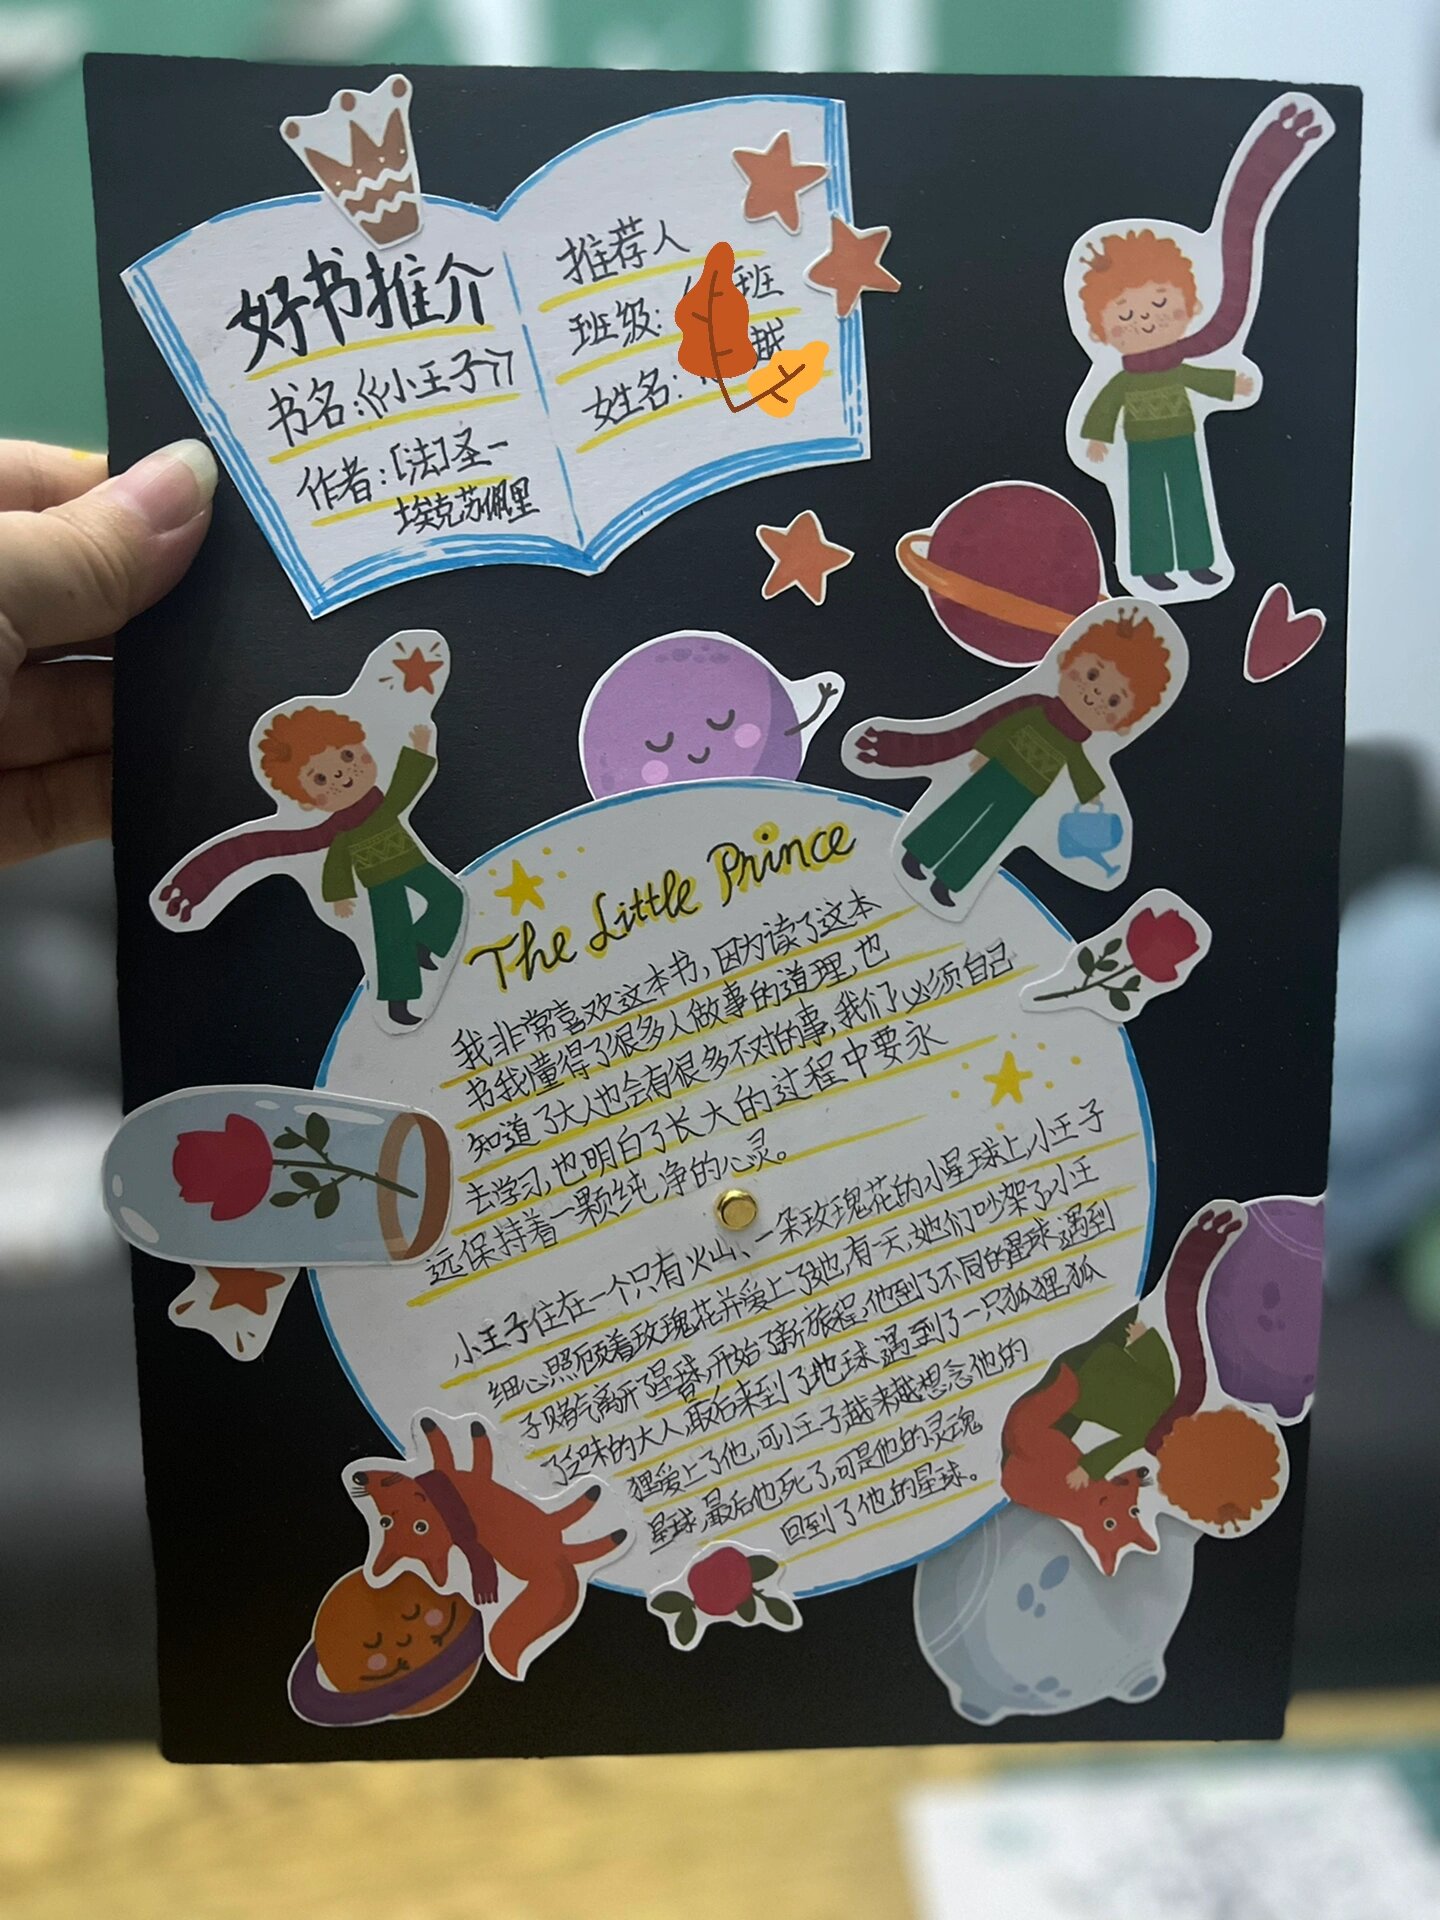 好书推介
书名:《小王子》
作者:[法]圣一
埃克苏佩里
推荐人
班级: 班
姓名: 越
The Little Prince
我非常喜欢这本书,因为读了这本
书我懂得了很多人做事的道理,也
知道了大人也会有很多不对的事,我们必须自己
去学习,也明白了长大的过程中要永
远保持着一颗纯净的心灵。
小王子住在一个只有火山、一朵玫瑰花的小星球上,小王子
细心照顾着玫瑰花并爱上了她,有一天,她们吵架了小王
子赌气离开了星球,开始了新旅程,他到了不同的星球遇到
了乏味的大人,最后来到了地球遇到了一只狐狸狐
狸爱上了他,可小王子越来越想念他的
星球,最后他死了,可是他的灵魂
回到了他的星球。